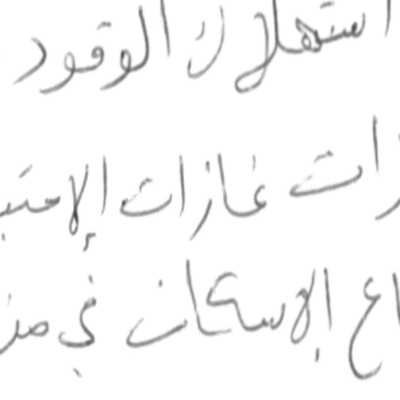 استهلاك الوقود
ات غازات الاحتب
اع الإسكان في